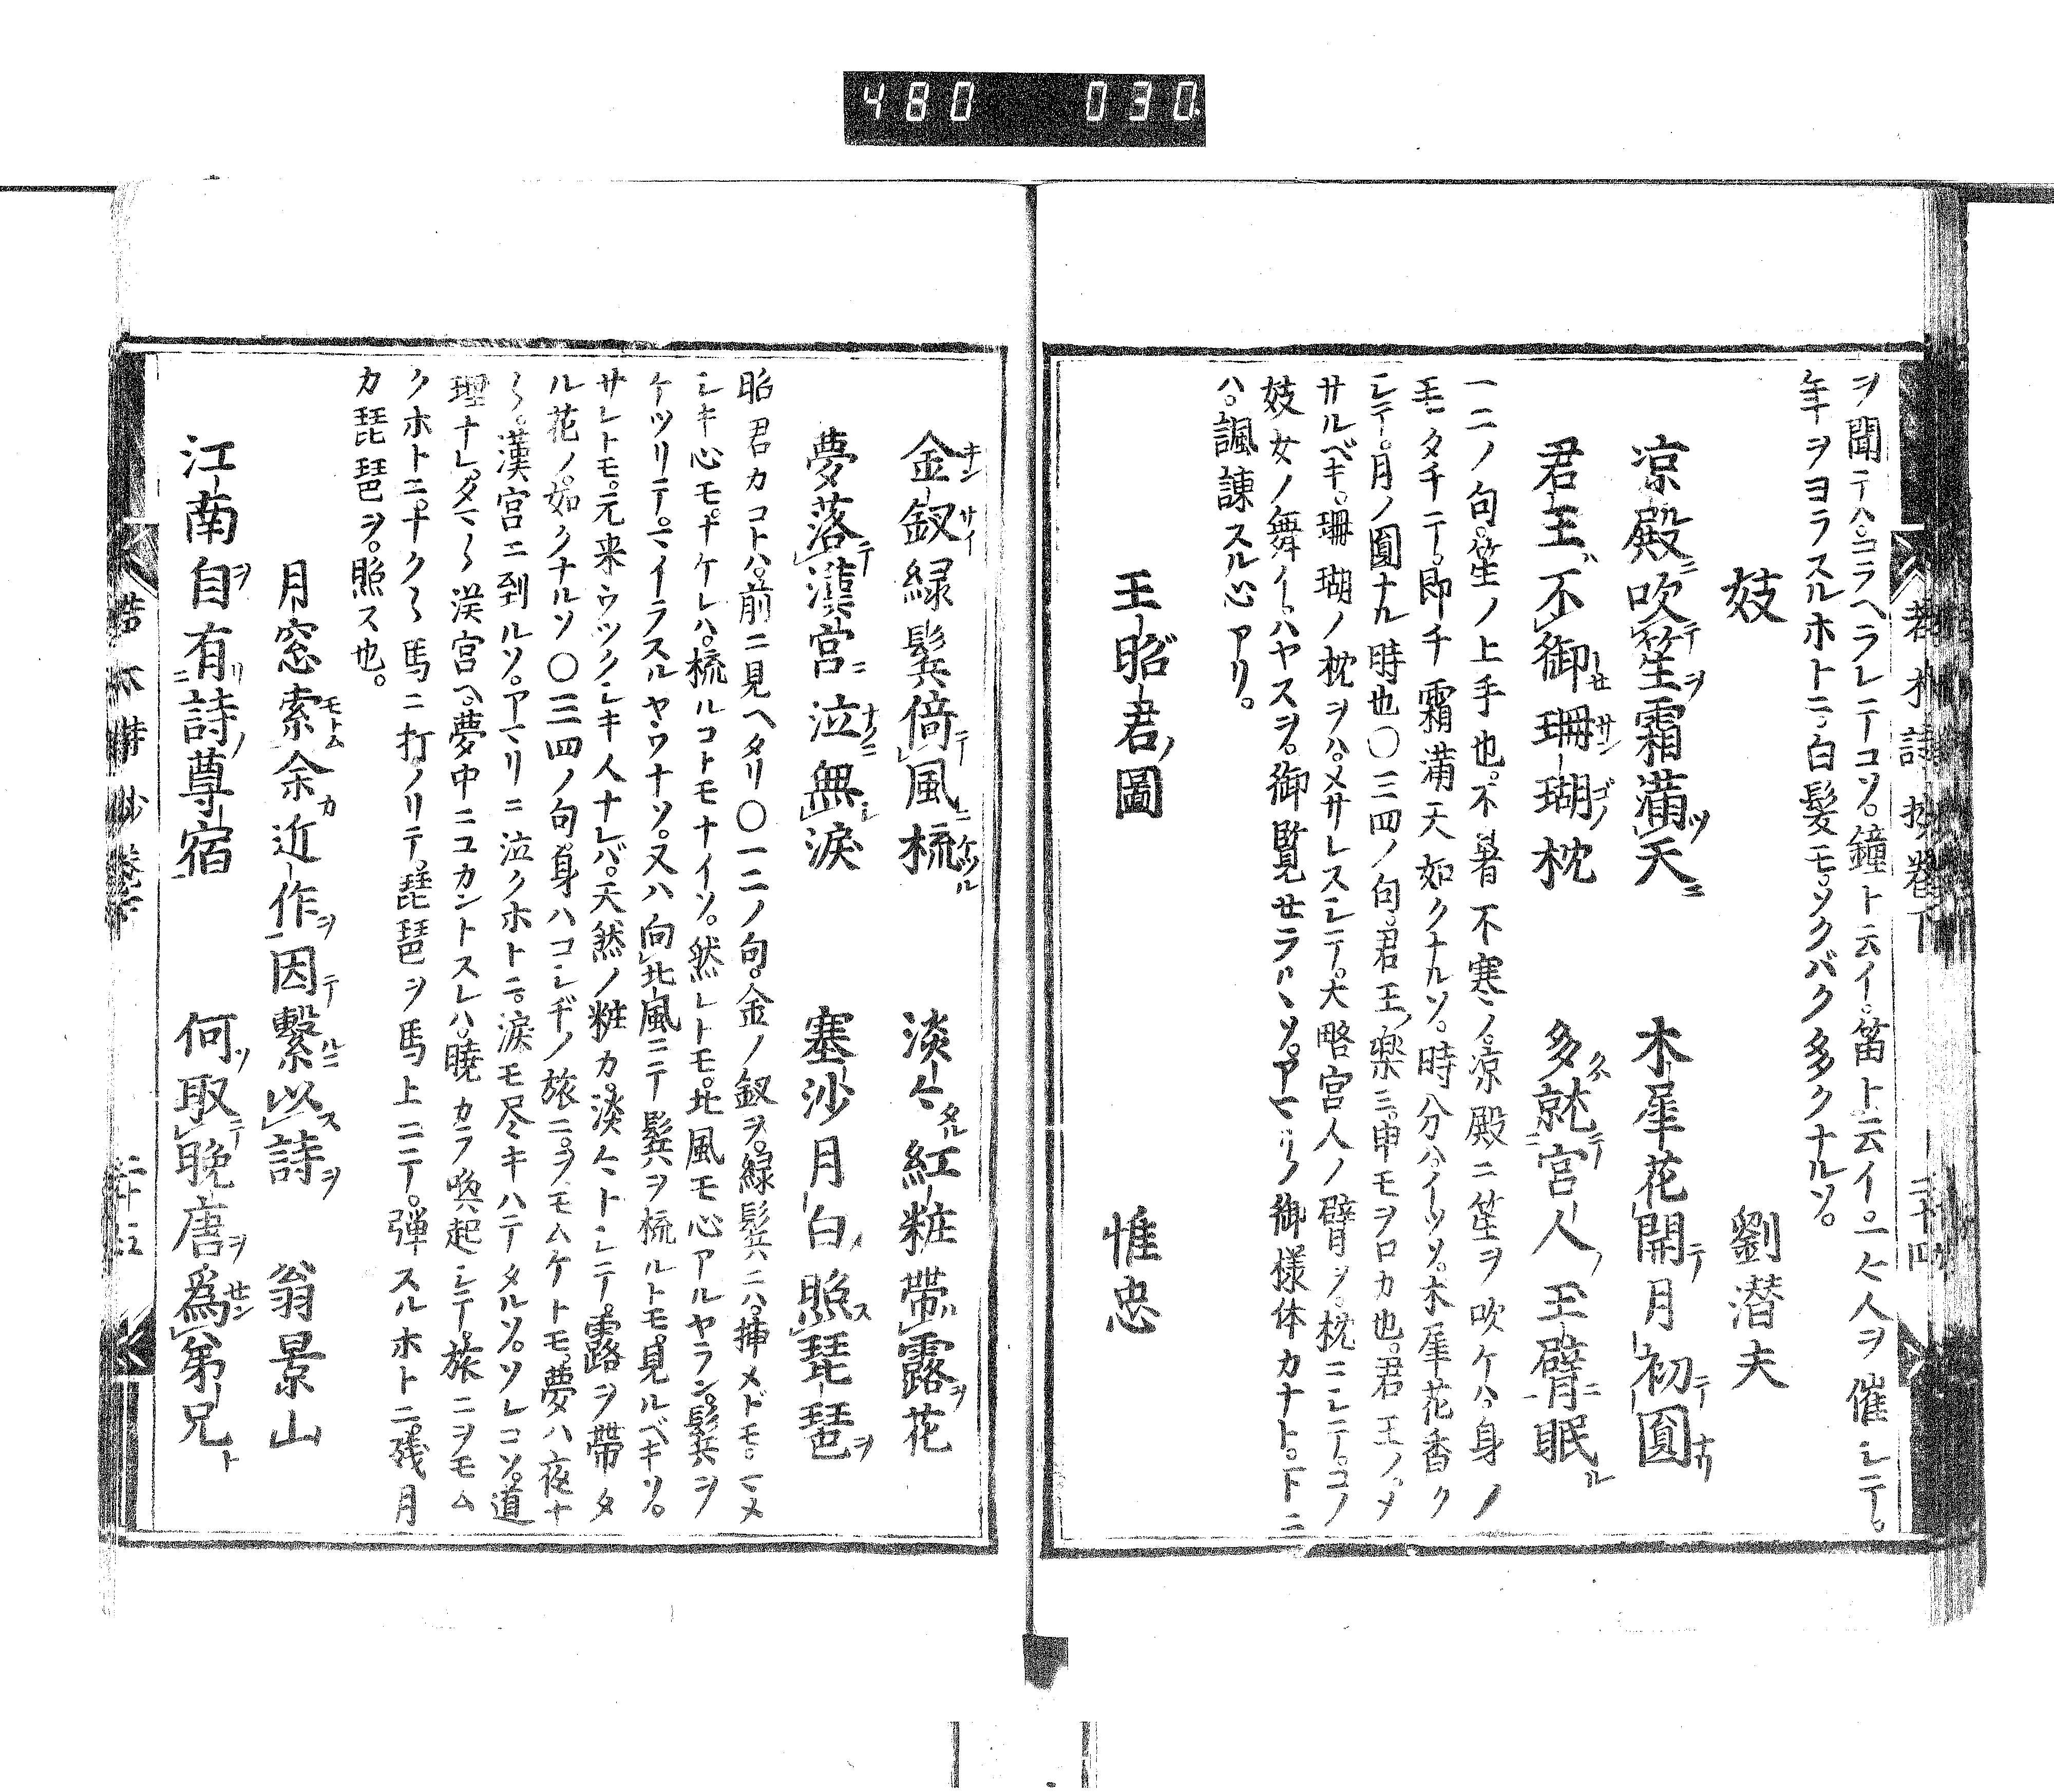 480 030
ヲ聞テハ。コラヘラレテコソ。鐘ト云イ。笛ト云イ。一々人ヲ催シテ。
年ヲヨラスルホトニ。白髪モ。ソクバク多クナルソ。
妓 劉潜夫
凉殿ニ吹テ笙ヲ霜満ツ天ニ 木犀花開テ月初テ圓ナリ
君王不御セ珊瑚ノ枕 多ク就テ宮人ノ玉臂ニ眠ル
一二ノ句。笙ノ上手也。不暑不寒ノ。凉殿ニ笙ヲ吹ケハ。身ノ
毛モタチテ。即チ霜満天如クナルソ。時分ハイツソ。木犀花香ク
シテ。月ノ圓ナル時也〇三四ノ句。君王ノ楽ミ。申モヲロカ也。君王ノメ
サルベキ。珊瑚ノ枕ヲハ。メサレスシテ。大略宮人ノ臂ヲ。枕ニシテ。コノ
妓女ノ舞イ。ハヤスヲ。御覧セラルヽソ。アマリノ御様体カナト。下ニ
ハ。諷諫スル心アリ。
王昭君ノ圖 惟忠
金釵緑鬢倚テ風ニ梳ル 淡々タル紅粧帯露ヲ花
夢落テ漢宮ニ泣ナクニ無シ涙 塞沙月白照ス琵琶ヲ
昭君カコトハ。前ニ見ヘタリ〇一二ノ句。金ノ釵ヲ。緑鬢ニハ。挿メドモ。ニメ
シキ心モ。ナケレハ。梳ルコトモナイソ。然レトモ。北風モ心アルヤラン。鬢ヲ
ケツリテ。マイラスルヤウナソ。又ハ向北風ニテ鬢ヲ梳ルトモ。見ルベキソ。
サレトモ。元来ウツクシキ人ナレバ。天然ノ粧カ。淡々トシテ。露ヲ帯タ
ル花ノ。如クナルソ〇三四ノ句。身ハコシヂノ旅ニ。ヲモムケトモ。夢ハ夜ナ
〱。漢宮ニ到ルソ。アマリニ泣クホトニ。涙モ尽キハテタルソ。ソレコソ。道
理ナレ。タマ〱漢宮ヘ。夢中ニユカントスレハ。暁カラ喚起シテ。旅ニヲモム
クホトニ。ナク〱馬ニ打ノリテ。琵琶ヲ馬上ニテ。弾スルホトニ。残月
カ琵琶ヲ。照ス也。
月窓索モトム余カ近作ヲ因テ繋ルニ以ス詩ヲ 翁景山
江南自ヲ有リ詩ノ尊宿 何ソ取テ晩唐ヲ爲セン弟兄ト